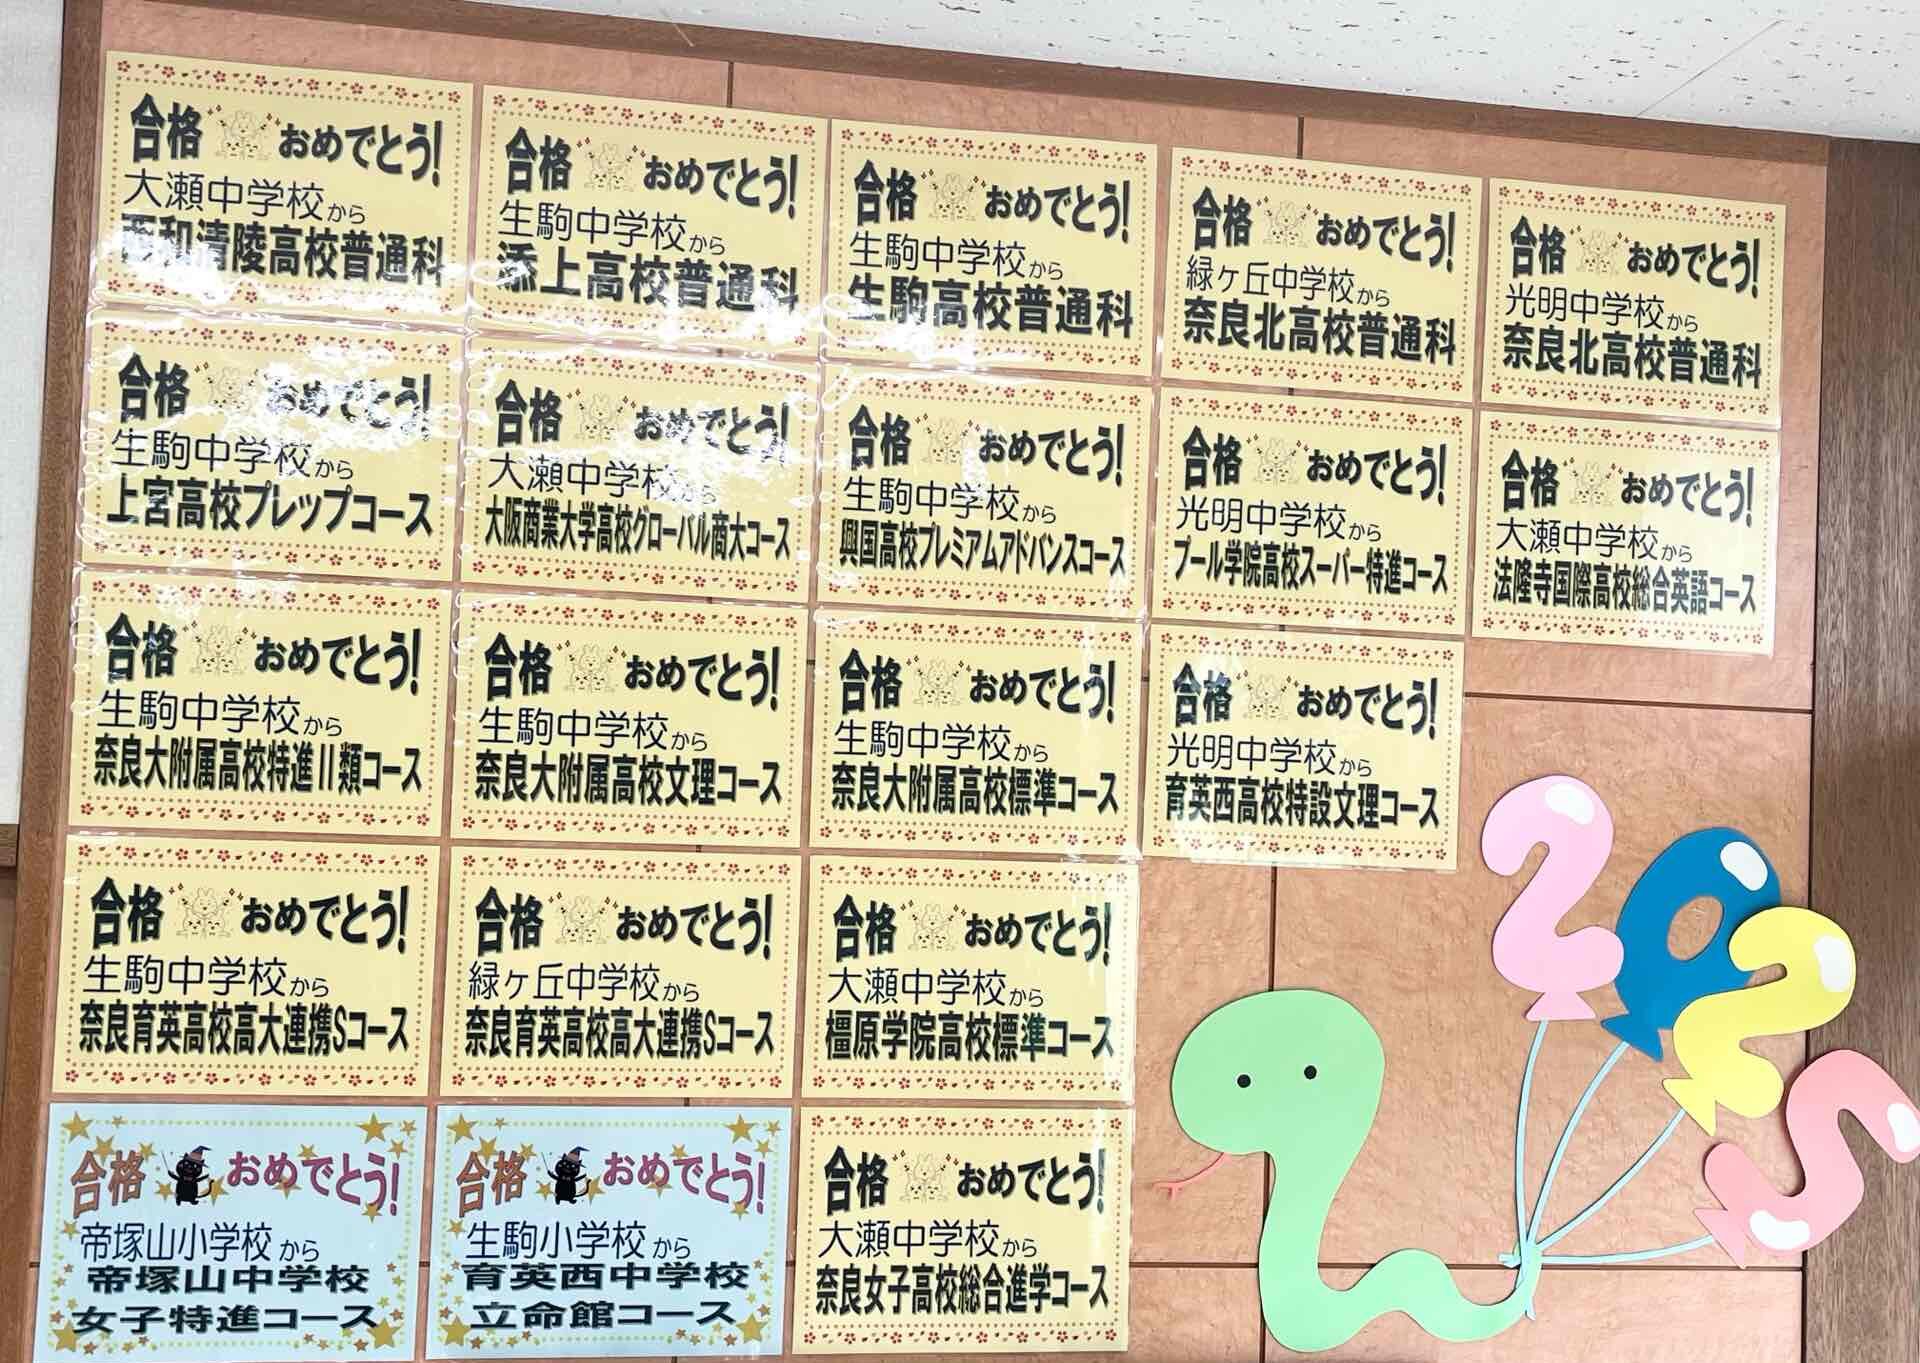 合格 おめでとう!
大瀬中学校から
西和清陵高校普通科
合格 おめでとう!
生駒中学校から
添上高校普通科
合格 おめでとう!
生駒中学校から
生駒高校普通科
合格 おめでとう!
緑ヶ丘中学校から
奈良北高校普通科
合格 おめでとう!
光明中学校から
奈良北高校普通科
合格 おめでとう!
生駒中学校から
上宮高校プレップコース
合格 おめでとう!
大瀬中学校から
大阪商業大学高校グローバル商大コース
合格 おめでとう!
生駒中学校から
興国高校プレミアムアドバンスコース
合格 おめでとう!
光明中学校から
プール学院高校スーパー特進コース
合格 おめでとう!
大瀬中学校から
法隆寺国際高校総合英語コース
合格 おめでとう!
生駒中学校から
奈良大附属高校特進Ⅱ類コース
合格 おめでとう!
生駒中学校から
奈良大附属高校文理コース
合格 おめでとう!
生駒中学校から
奈良大附属高校標準コース
合格 おめでとう!
光明中学校から
育英西高校特設文理コース
合格 おめでとう!
生駒中学校から
奈良育英高校高大連携Sコース
合格 おめでとう!
緑ヶ丘中学校から
奈良育英高校高大連携Sコース
合格 おめでとう!
大瀬中学校から
橿原学院高校標準コース
合格 おめでとう!
帝塚山小学校から
帝塚山中学校
女子特進コース
合格 おめでとう!
生駒小学校から
育英西中学校
立命館コース
合格 おめでとう!
大瀬中学校から
奈良女子高校総合進学コース
2025